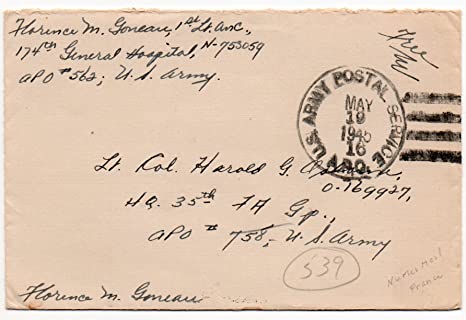 Florence M. Goneau, 1st Lt. anc,
174th General Hospital, N-753059
APO #562, U.S. Army.
Free
U.S. ARMY POSTAL SERVICE
A.P.O.
MAY
19
1945
16
Lt. Col. Harold G.
O-169927,
HQ. 35th FA Gp.,
APO # 758, U.S. Army
339
France
Florence M. Goneau